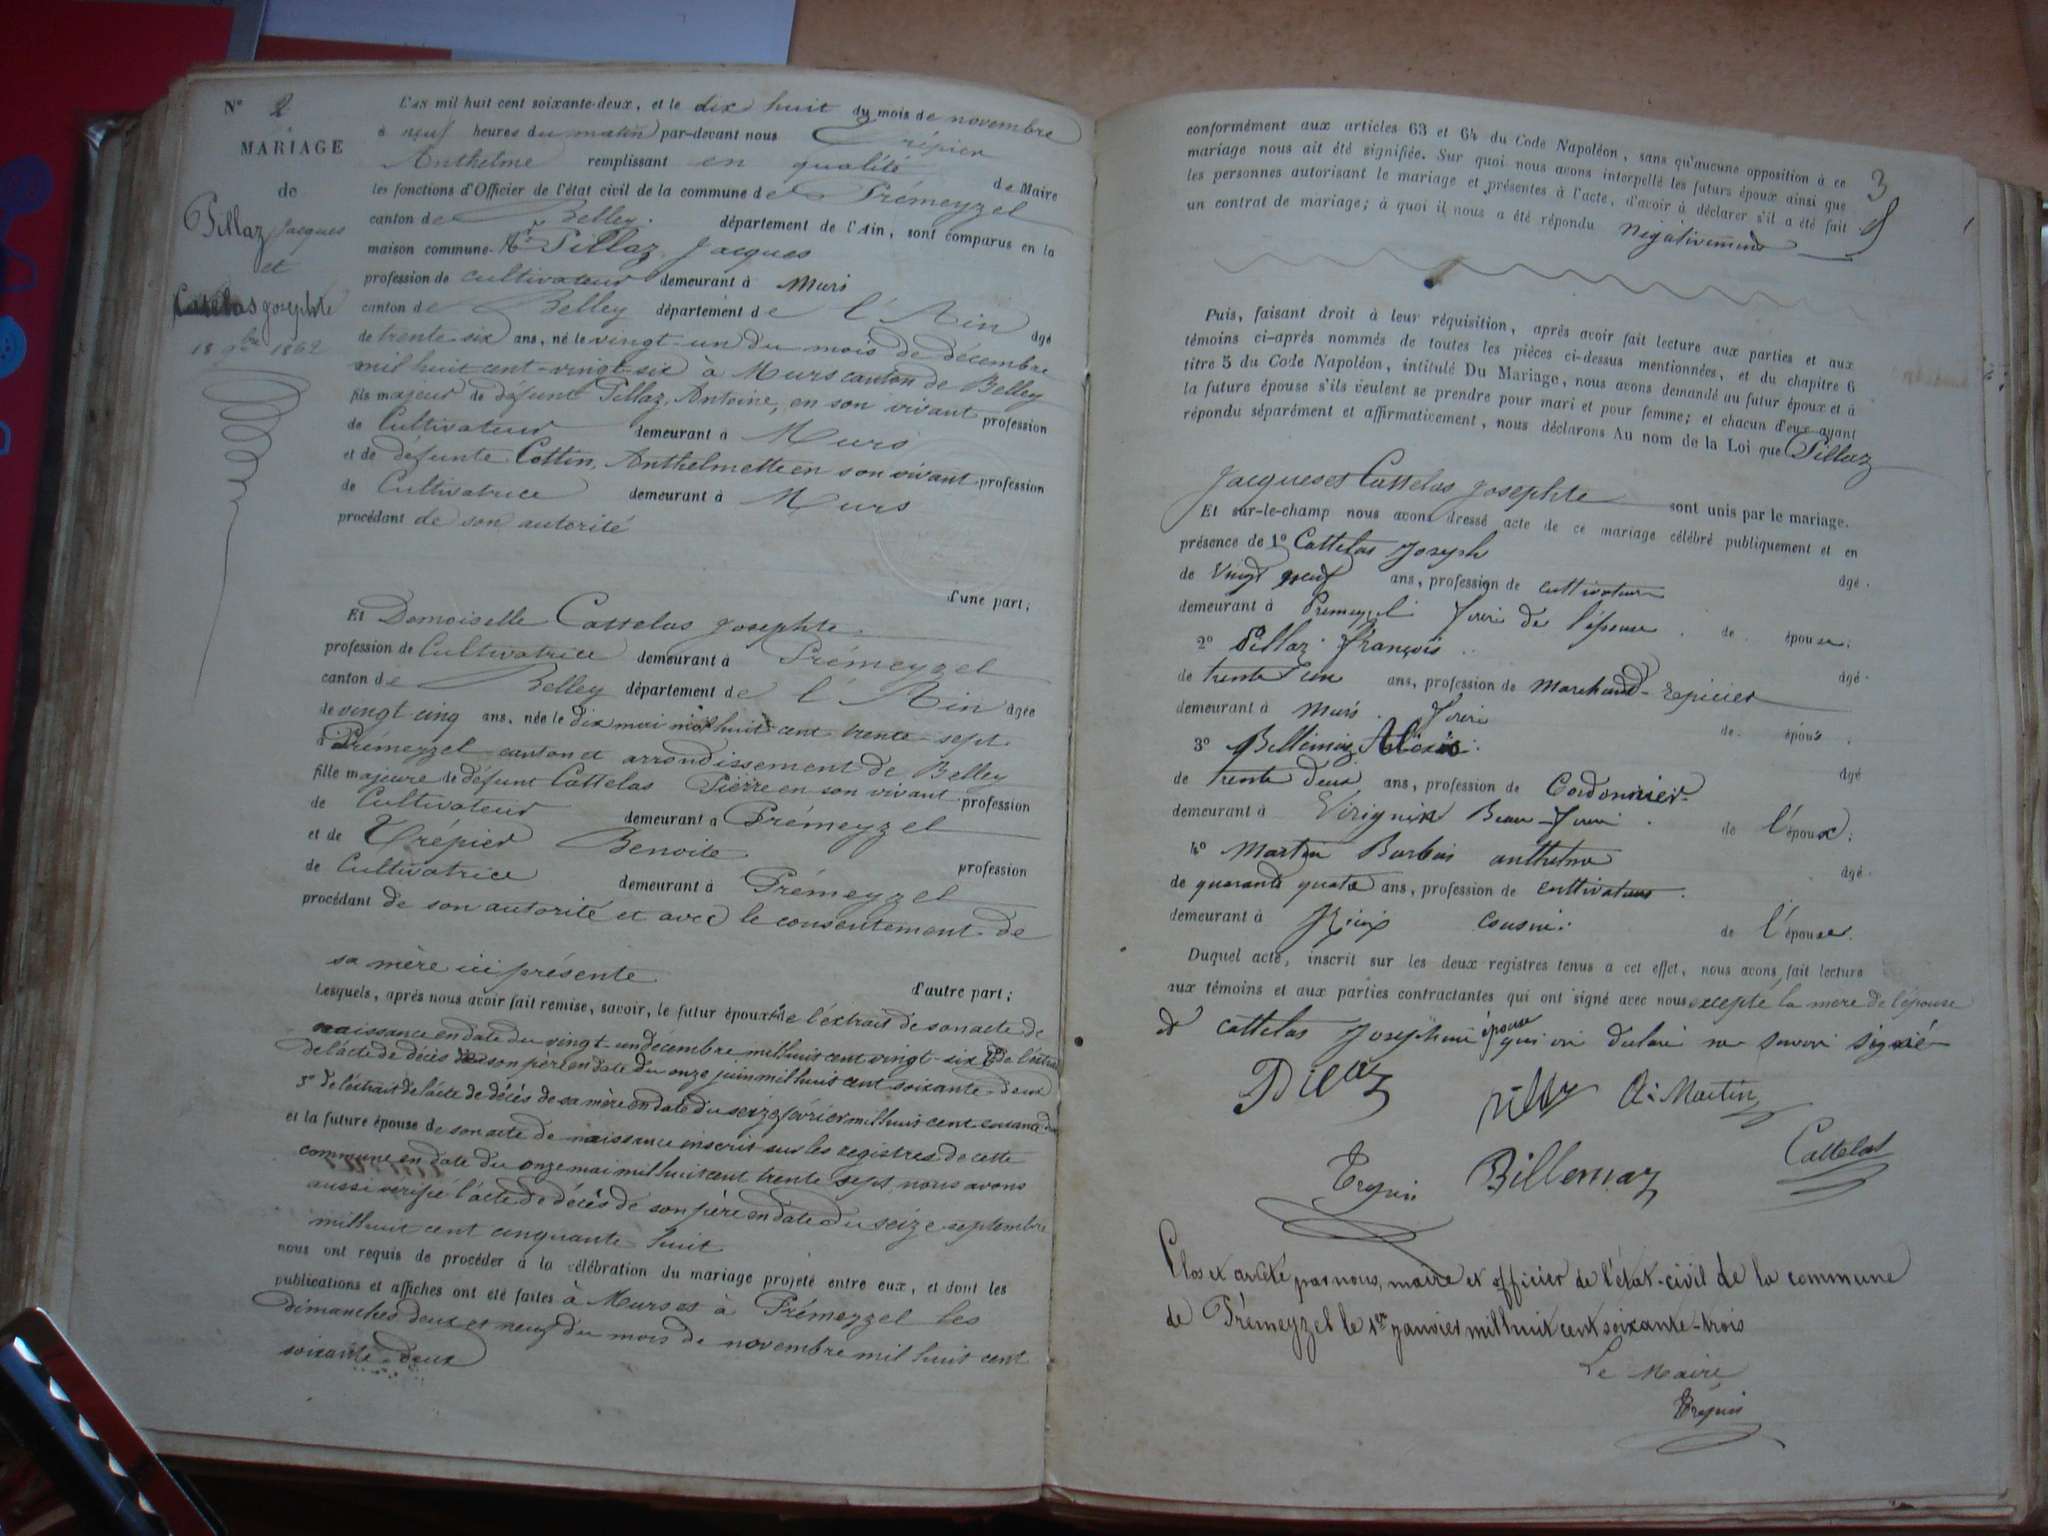 N° 2
MARIAGE
de
Pillaz Jacques
et
Cattelas Josephte
18 9bre 1862
L'an mil huit cent soixante-deux, et le dix huit du mois de novembre
à neuf heures du matin par-devant nous Trépier
Anthelme remplissant en qualité de Maire
les fonctions d'Officier de l'état civil de la commune de Prémeyzel
canton de Belley. département de l'Ain, sont comparus en la
maison commune. Pillaz, Jacques
profession de cultivateur demeurant à Murs
canton de Belley département de l'Ain âgé
de trente six ans, né le vingt-un du mois de décembre
mil huit cent-vingt-six à Murs canton de Belley
fils majeur de défunt Pillaz, Antoine, en son vivant profession
de Cultivateur demeurant à Murs
et de défunte Cottin, Anthelmette en son vivant profession
de Cultivatrice demeurant à Murs
procédant de son autorité
d'une part;
Et Demoiselle Cattelas Josephte
profession de Cultivatrice demeurant à Prémeyzel
canton de Belley département de l'Ain âgée
de vingt cinq ans, née le dix mai mil huit cent trente-sept
à Prémeyzel canton et arrondissement de Belley
fille majeure de défunt Cattelas Pierre en son vivant profession
de Cultivateur demeurant à Prémeyzel
et de Trépier Benoite profession
de Cultivatrice demeurant à Prémeyzel
procédant de son autorité et avec le consentement de
sa mère ici présente
d'autre part;
Lesquels, après nous avoir fait remise, savoir, le futur époux de l'extrait de son acte de
naissance en date du vingt-un décembre mil huit cent vingt-six de l'extrait
de l'acte de décès de son père en date du onze juin mil huit cent soixante-deux
3° de l'extrait de l'acte de décès de sa mère en date du seize février mil huit cent
et la future épouse de son acte de naissance inscrit sur les registres de cette
commune en date du onze mai mil huit cent trente sept, nous avons
aussi vérifié l'acte de décès de son père en date du seize septembre
mil huit cent cinquante-huit
nous ont requis de procéder à la célébration du mariage projeté entre eux, et dont les
publications et affiches ont été faites à Murs et à Prémeyzel les
dimanches deux et neuf du mois de novembre mil huit cent
soixante-deux
3
conformément aux articles 63 et 64 du Code Napoléon, sans qu'aucune opposition à ce
mariage nous ait été signifiée. Sur quoi nous avons interpellé les futurs époux ainsi que
les personnes autorisant le mariage et présentes à l'acte, d'avoir à déclarer s'il a été fait
un contrat de mariage; à quoi il nous a été répondu négativement
Puis, faisant droit à leur réquisition, après avoir fait lecture aux parties et aux
témoins ci-après nommés de toutes les pièces ci-dessus mentionnées, et du chapitre 6
titre 5 du Code Napoléon, intitulé Du Mariage, nous avons demandé au futur époux et à
la future épouse s'ils veulent se prendre pour mari et pour femme; et chacun d'eux ayant
répondu séparément et affirmativement, nous déclarons Au nom de la Loi que Pillaz
Jacques et Cattelas Josephte sont unis par le mariage.
Et sur-le-champ nous avons dressé acte de ce mariage célébré publiquement et en
présence de 1° Cattelas Joseph âgé
de vingt neuf ans, profession de cultivateur
demeurant à Prémeyzel frère de l'épouse de épouse.
2° Pillaz François âgé
de trente un ans, profession de Marchand-Epicier
demeurant à Murs frère de époux.
3° Billemaz Alexis âgé
de trente deux ans, profession de Cordonnier
demeurant à Virignin Beau-frère de l'époux;
4° Martin Barbaz anthelme âgé
de quarante quatre ans, profession de cultivateur
demeurant à cousin de l'épouse.
Duquel acte, inscrit sur les deux registres tenus à cet effet, nous avons fait lecture
aux témoins et aux parties contractantes qui ont signé avec nous excepté la mère de l'épouse
et Cattelas Josephine épouse qui ont déclaré ne savoir signé
Pillaz Pillaz A. Martin
Trépier Billemaz Cattelas
Clos et arrêté par nous, maire et officier de l'état-civil de la commune
de Prémeyzel le 1er janvier mil huit cent soixante-trois
Le Maire
Trépier